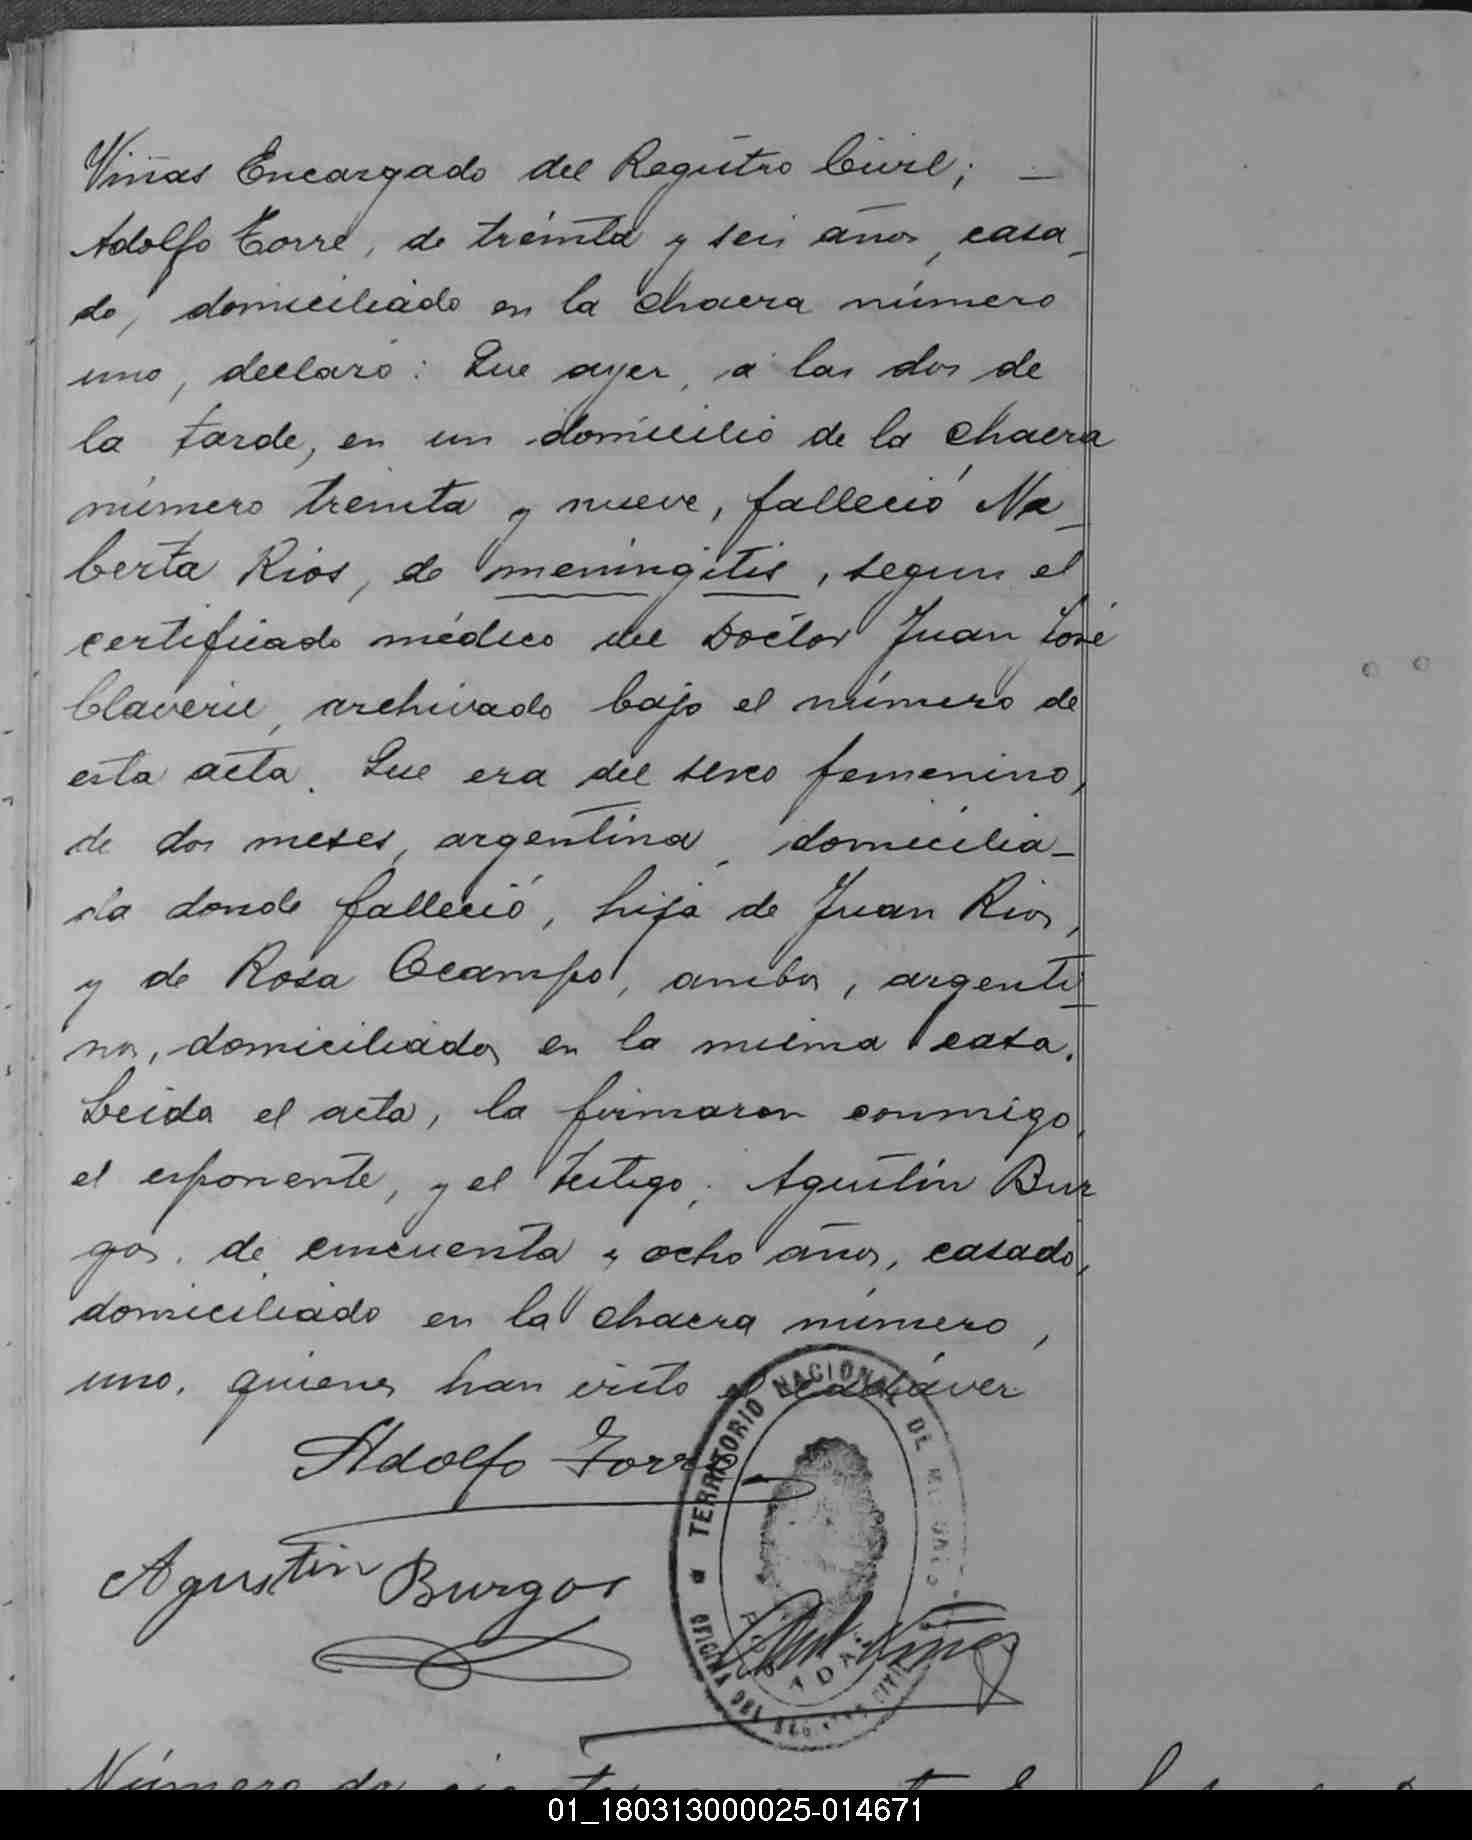 Viñas Encargado del Registro Civil; —
Adolfo Torre, de treinta y seis años, casa_
do, domiciliado en la chacra número
uno, declaró: Que ayer, a las dos de
la tarde, en un domicilio de la chacra
número treinta y nueve, falleció Na_
berta Rios, de meningitis, segun el
certificado médico del Doctor Juan José
Claverie, archivado bajo el número de
esta acta. Que era del sexo femenino,
de dos meses, argentina, domicilia_
da donde falleció, hija de Juan Rios,
y de Rosa Ocampo, ambos, argenti_
nos, domiciliados en la misma casa.
Leida el acta, la firmaron conmigo,
el esponente, y el testigo; Agustín Bur
gos, de cincuenta y ocho años, casado,
domiciliado en la chacra número,
uno, quienes han visto el cadáver
Adolfo Torre
Agustin Burgos
TERRITORIO NACIONAL DE MISIONES
OFICINA DEL REGISTRO CIVIL
POSADAS
Viñas
01_180313000025-014671